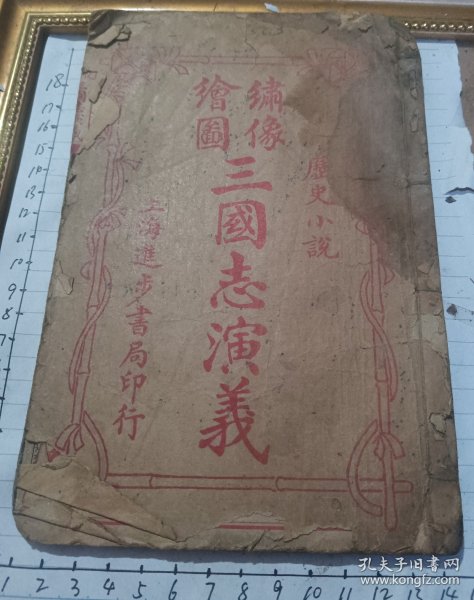 歷史小說
繡像
繪圖
三國志演義
上海進步書局印行
18
17
16
15
14
13
12
11
10
9
8
7
1 2 3 4 5 6 7 8 9 10 11 12 13 14
孔夫子旧书网
www.kongfz.com